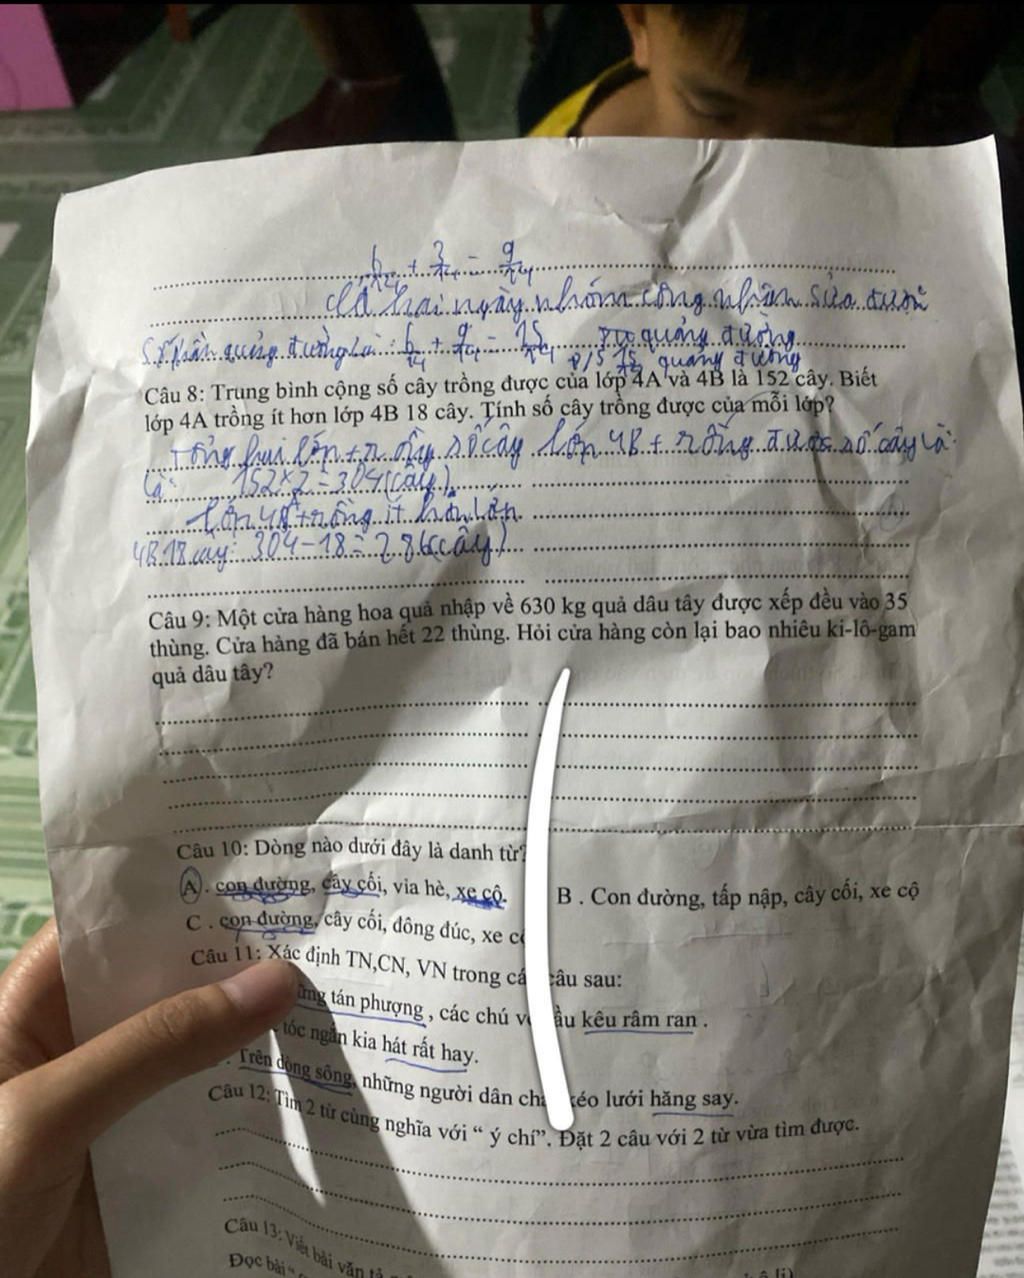 6/24 + 3/24 = 9/24
Cả hai ngày nhóm công nhân sửa được
Số phần quãng đường là: 6/24 + 9/24 = 15/24 quãng đường
Đ/S 15 quãng đường
Câu 8: Trung bình cộng số cây trồng được của lớp 4A và 4B là 152 cây. Biết
lớp 4A trồng ít hơn lớp 4B 18 cây. Tính số cây trồng được của mỗi lớp?
số cây lớp 4B trồng được số cây là:
là: 152 x 2 = 304 (cây)
trồng ít hơn lớp
4B 18 cây: 304 - 18 = 286 (cây)
Câu 9: Một cửa hàng hoa quả nhập về 630 kg quả dâu tây được xếp đều vào 35
thùng. Cửa hàng đã bán hết 22 thùng. Hỏi cửa hàng còn lại bao nhiêu ki-lô-gam
quả dâu tây?
Câu 10: Dòng nào dưới đây là danh từ?
A . con đường, cây cối, vỉa hè, xe cộ.
B . Con đường, tấp nập, cây cối, xe cộ
C . con đường, cây cối, đông đúc, xe
Câu 11: Xác định TN,CN, VN trong câu sau:
tán phượng , các chú kêu râm ran .
tóc ngắn kia hát rất hay.
Trên dòng sông, những người dân kéo lưới hăng say.
Câu 12: Tìm 2 từ cùng nghĩa với “ ý chí”. Đặt 2 câu với 2 từ vừa tìm được.
Câu 13: Viết bài văn tả
Đọc bài